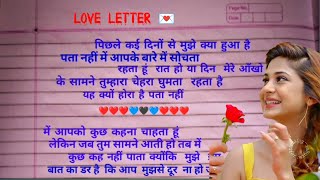 Page No.
Date
LOVE LETTER 💌
पिछले कई दिनों से मुझे क्या हुआ है
पता नहीं में आपके बारे में सोचता
रहता हूं रात हो या दिन मेरे आँखों
के सामने तुम्हारा चेहरा घुमता रहता है
यह क्यों होरा है पता नहीं
❤️❤️💙🖤💙❤️❤️❤️
में आपको कुछ कहना चाहता हूं
लेकिन जब तुम सामने आती हो तब में
कुछ कह नहीं पाता क्योंकि मुझे
बात का डर है कि आप मुझसे दूर ना हो